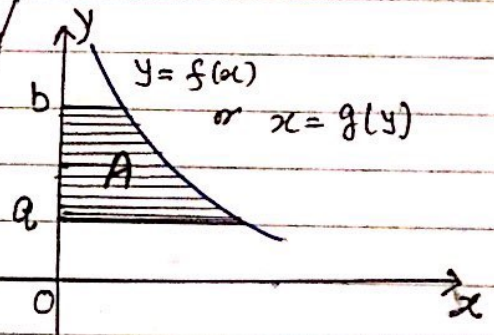 y
y = f(x)
b
or x = g(y)
A
a
O
x